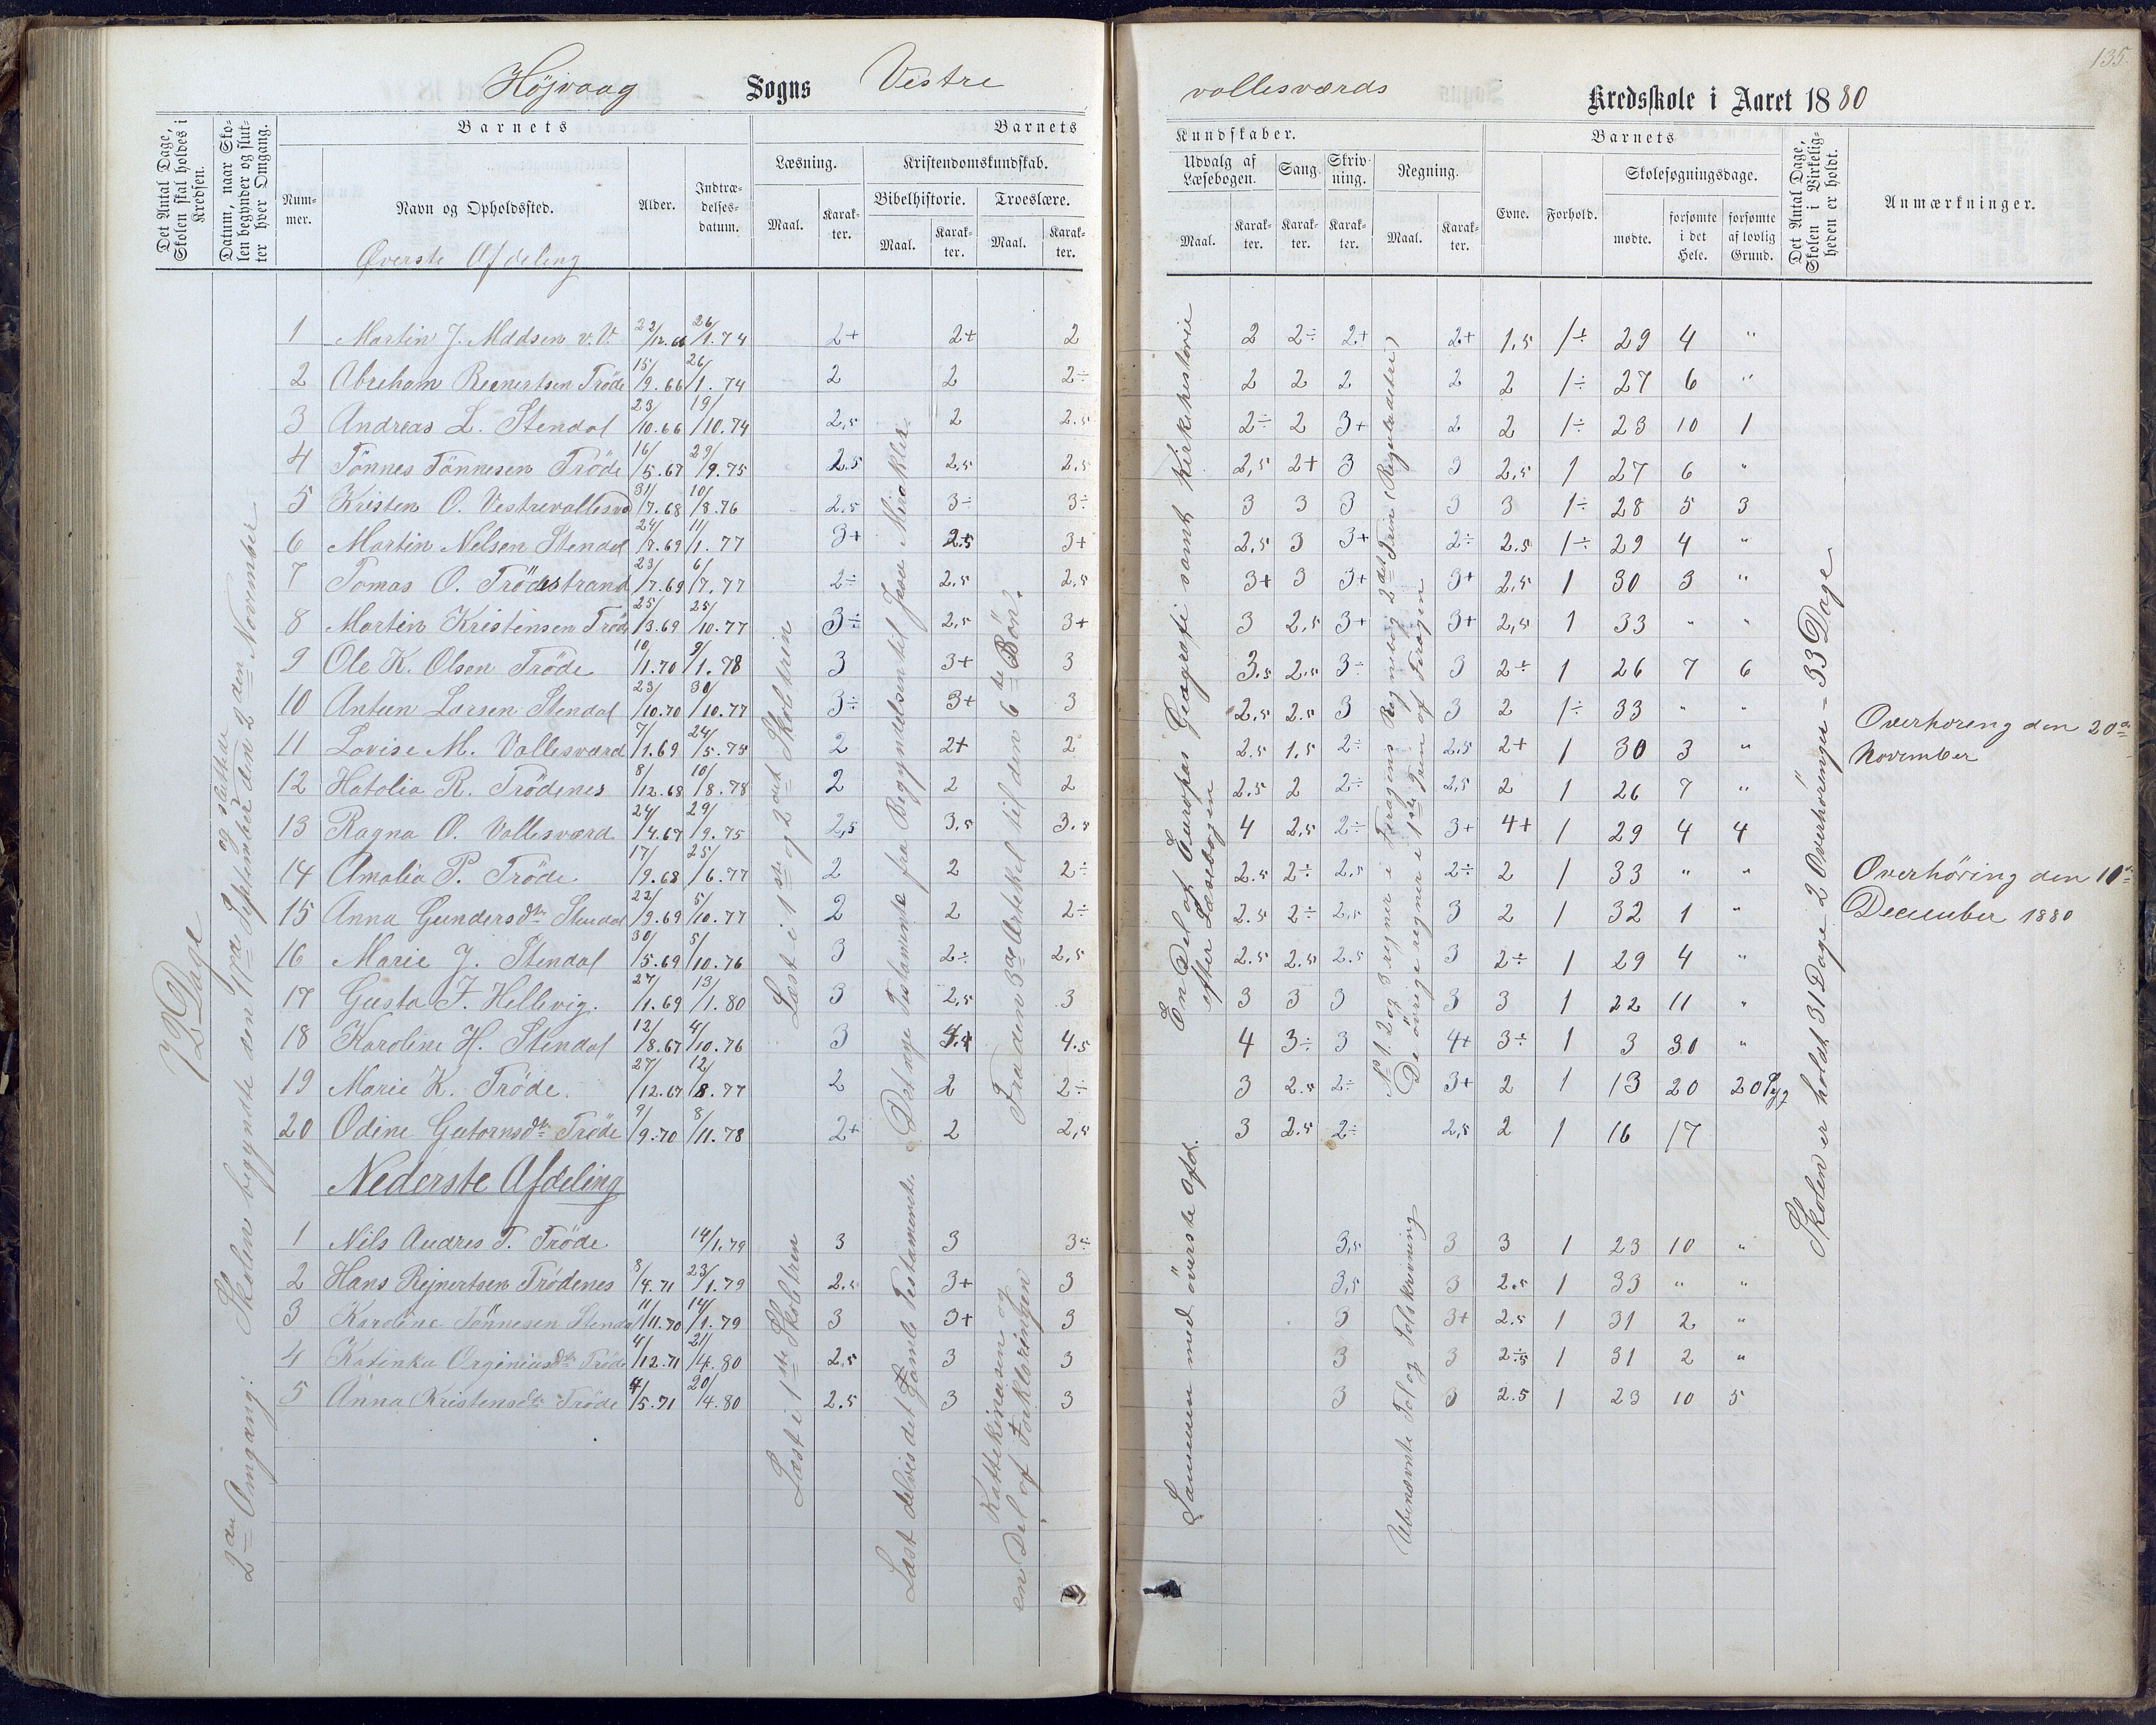 135.
Höjvaag Sogns Vestre vallesværds Kredsskole i Aaret 1880
Det Antal Dage, Skolen skal holdes i Kredsen.
Datum, naar Skolen begynder og slutter hver Omgang.
Barnets
Nummer.
Navn og Opholdssted.
Alder.
Indtrædelsesdatum.
Barnets
Læsning.
Maal.
Karakter.
Kristendomskundskab.
Bibelhistorie.
Maal.
Karakter.
Troeslære.
Maal.
Karakter.
Kundskaber.
Udvalg af Læsebogen.
Maal.
Karakter.
Sang.
Karakter.
Skrivning.
Karakter.
Regning.
Maal.
Karakter.
Barnets
Evne.
Forhold.
Skolesøgningsdage.
mødte.
forsømte i det Hele.
forsømte af lovlig Grund.
Det Antal Dage, Skolen i Virkeligheden er holdt.
Anmærkninger.
Øverste Afdeling
72 Dage
2den Omgang: Skolen begyndte den 17de September og sluttede den 2den November
Læst i 1ste og 2det Skoletrin
Det nye Testamente fra Begyndelsen til Jesu Mirakler
Fra den 3die Artikel til den 6te Bön.
En Del af Europas Geografi samt Kirkehistorie efter Læsebogen
No 1. 2 og 3 regner i Foragens Regnebog 2det Trin (Reguladetri)
De övrige regner i 1ste Trin af Foragen
Skolen er holdt 31 Dage - 2 Overhöringer - 33 Dage
1 Martin J. Madsen v.V. 22/12.66 26/1.74 2+ 2+ 2 2 2÷ 2+ 2+ 1.5 1÷ 29 4 "
2 Abreham Reinertsen Tröde 15/9.66 26/1.74 2 2 2÷ 2 2 2 2 2 1÷ 27 6 "
3 Andreas L. Stendal 23/10.66 19/10.74 2,5 2 2.5 2÷ 2 3+ 2 2 1÷ 23 10 1
4 Tönnes Tönnesen Tröde 16/5.67 29/9.75 2.5 2,5 2,5 2,5 2+ 3 3 2,5 1 27 6 "
5 Kristen O. Vestrevallesvd 31/7.68 10/8.76 2,5 3÷ 3÷ 3 3 3 3 3 1÷ 28 5 3
6 Martin Nelsen Stendal 24/7.69 11/1.77 3+ 2.5 3+ 2,5 3 3+ 2÷ 2.5 1÷ 29 4 "
7 Tomas O. Trödestrand 23/7.69 6/7.77 2÷ 2.5 2,5 3+ 3 3+ 3+ 2,5 1 30 3 "
8 Martin Kristensen Tröde 25/3.69 25/10.77 3÷ 2,5 3+ 3 2,5 3+ 3+ 2,5 1 33 " "
9 Ole K. Olsen Tröde 10/1.70 9/1.78 3 3+ 3 3.5 2.5 3÷ 3 2÷ 1 26 7 6
10 Anteen Larsen Stendal 23/10.70 30/10.77 3÷ 3+ 3 2.5 2.5 3 3 2 1÷ 33 " "
11 Lovise M. Vallesværd 7/1.69 24/5.75 2 2+ 2 2.5 1.5 2÷ 2.5 2+ 1 30 3 "
12 Hatolia R. Trödenes 8/12.68 10/8.78 2 2 2 2.5 2 2÷ 2,5 2 1 26 7 "
13 Ragna O. Vallesværd 24/4.67 29/9.75 2,5 3.5 3.5 4 2.5 2÷ 3+ 4+ 1 29 4 4
14 Amalia P. Tröde 17/9.68 25/6.77 2 2 2÷ 2.5 2÷ 2,5 2÷ 2 1 33 " "
15 Anna Gundersdtr Stendal 22/9.69 5/10.77 2 2 2÷ 2.5 2÷ 2,5 3 2 1 32 1 "
16 Marie J. Stendal 30/5.69 5/10.76 3 2÷ 2,5 2.5 2.5 2.5 3 2÷ 1 29 4 "
17 Gusta F. Hellevig. 27/1.69 13/1.80 3 2,5 3 3 3 3 3 3 1 22 11 "
18 Karoline H. Stendal 12/8.67 4/10.76 3 4.5 4 3÷ 3 4+ 3÷ 1 3 30 "
19 Marie K. Tröde. 27/12.67 12/8.77 2 2 2÷ 3 2.5 2÷ 3+ 2 1 13 20 20 Syg
20 Odine Gutormsdtr Tröde 9/9.70 8/11.78 2+ 2 2,5 3 2.5 2÷ 2,5 2 1 16 17
Overhöreng den 20de November
Overhöring den 10de December 1880
Nederste Afdeling
Læst i 1ste Skoletren
Læst delvis det Gamle Testamente
Kattekismusen og en Del af Forklaringen
Sammen med överste Afd.
Ubenævnte Tal og Talskrivning
1 Nils Andres T. Tröde 14/1.79 3 3 3÷ 3,5 3 3 1 23 10 "
2 Hans Rejnertsen Trödenes 8/4.71 23/1.79 2.5 3+ 3 3,5 3 2.5 1 33 " "
3 Karoline Tönnesen Stendal 11/11.70 14/1.79 3 3+ 3 3 3+ 2.5 1 31 2 "
4 Katinka Orginiusdtr Tröde 4/12.71 21/4.80 2,5 3 3 3 3 2.5 1 31 2 "
5 Anna Kristensdtr Tröde 4/5.71 20/4.80 2.5 3 3 3 3 2.5 1 23 10 5